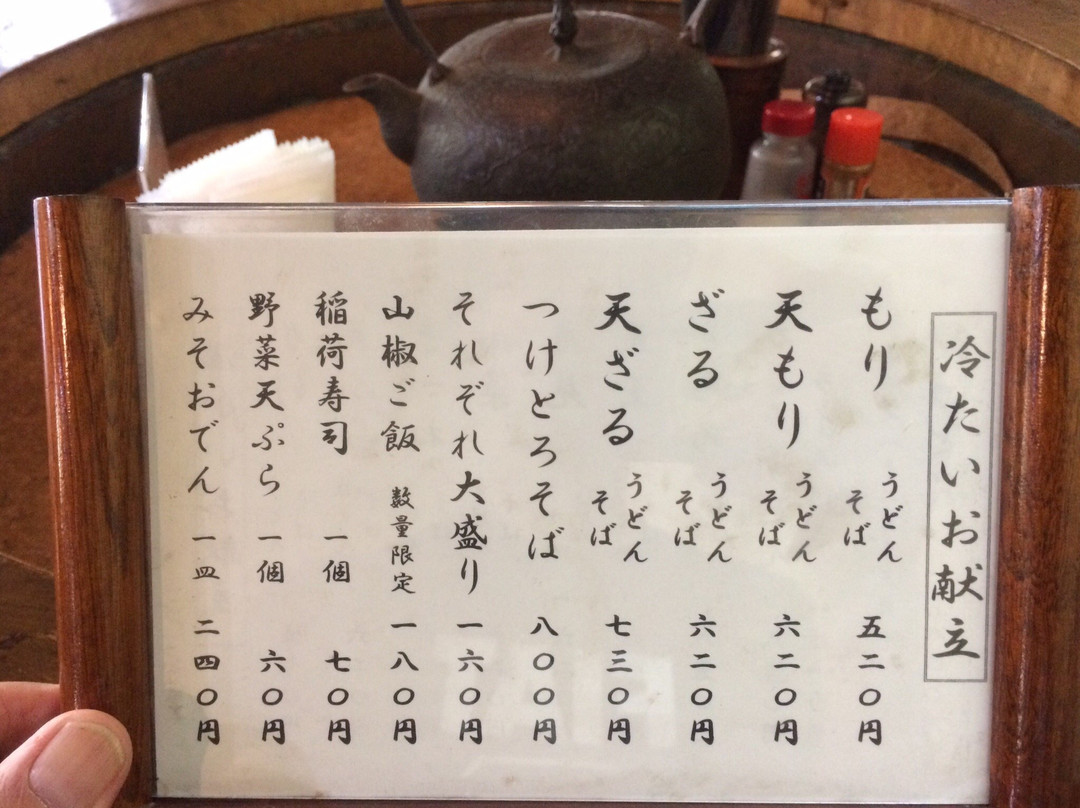 冷たいお献立
もり うどん そば 五二〇円
天もり うどん そば 六二〇円
ざる うどん そば 六二〇円
天ざる うどん そば 七三〇円
つけとろそば 八〇〇円
それぞれ大盛り 一六〇円
山椒ご飯 数量限定 一八〇円
稲荷寿司 一個 七〇円
野菜天ぷら 一個 六〇円
みそおでん 一皿 二四〇円